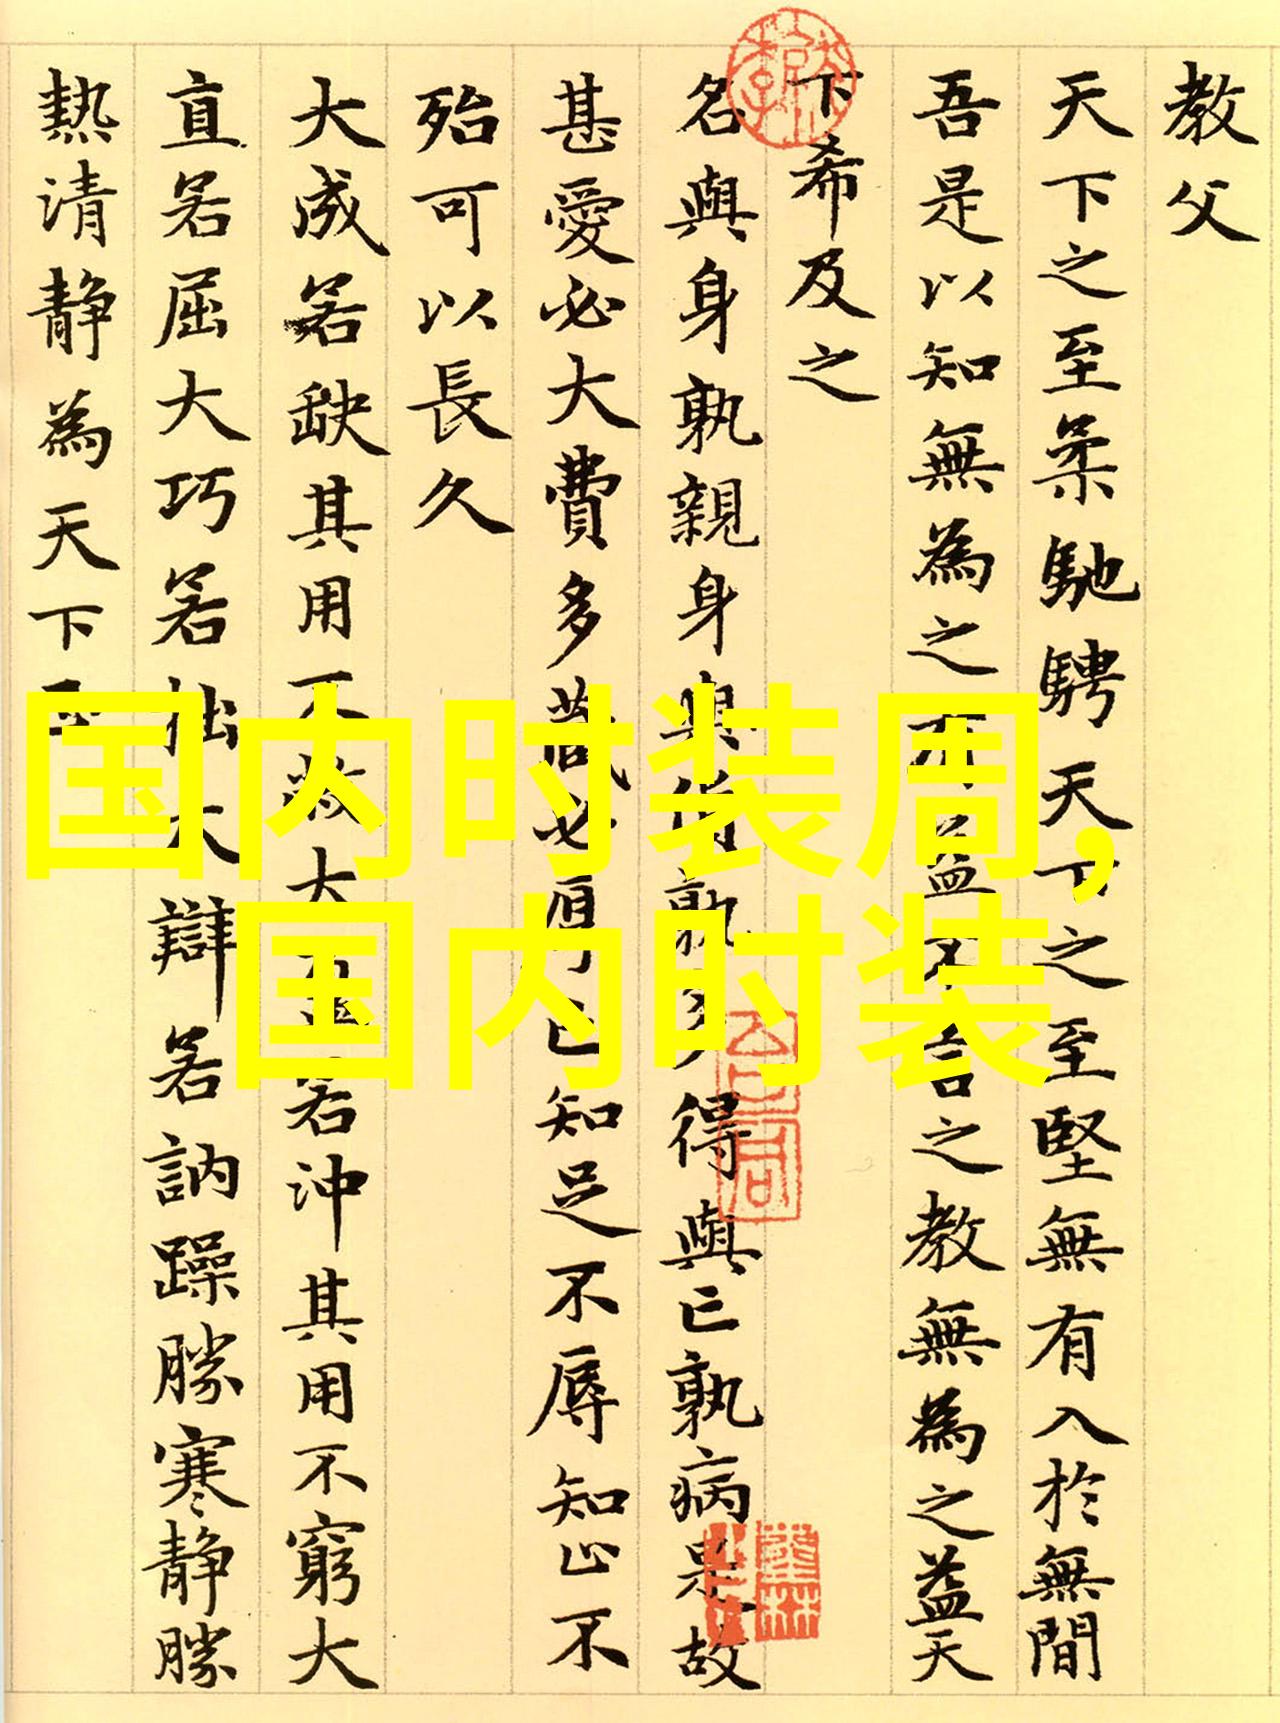 教父
天下之至柔馳騁天下之至堅無有入於無間
吾是以知無為之有益不言之教無為之益天
下希及之
名與身孰親身與貨孰多得與亡孰病是故
甚愛必大費多藏必厚亡知足不辱知止不
殆可以長久
大成若缺其用不敝大盈若沖其用不窮大
直若屈大巧若拙大辯若訥躁勝寒靜勝
熱清靜為天下正
国内时装周,
国内时装